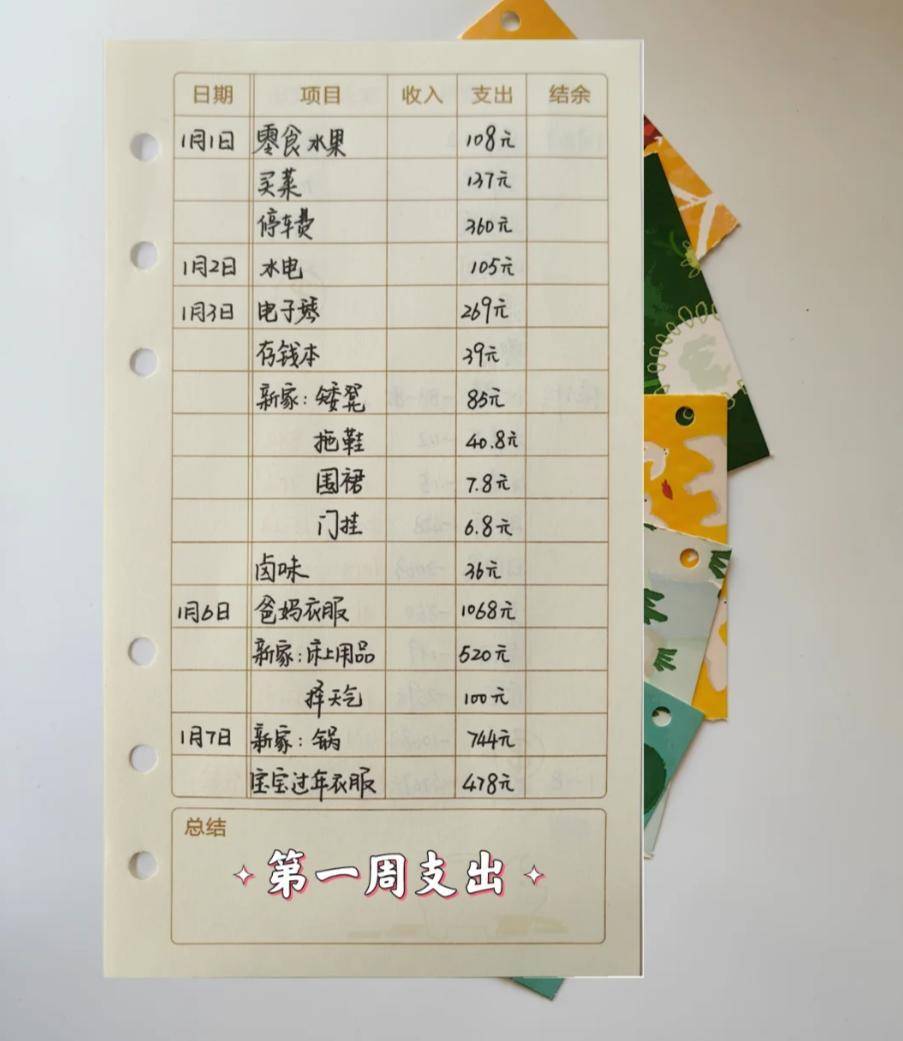 日期 项目 收入 支出 结余
1月1日 零食水果 108元
买菜 137元
停车费 360元
1月2日 水电 105元
1月3日 电子琴 269元
存钱本 39元
新家：矮凳 85元
拖鞋 40.8元
围裙 7.8元
门挂 6.8元
卤味 36元
1月6日 爸妈衣服 1068元
新家：床上用品 520元
择天气 100元
1月7日 新家：锅 744元
宝宝过年衣服 478元
总结
第一周支出